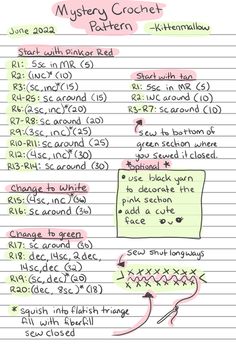 Mystery Crochet
Pattern
June 2022
-Kittenmallow
Start with Pink or Red
R1: 5sc in MR (5)
R2: (inc)*(10)
R3: (sc, inc)*(15)
R4-R5: sc around (15)
R6: (2sc, inc)*(20)
R7-R8: sc around (20)
R9: (3sc, inc)*(25)
R10-R11: sc around (25)
R12: (4sc, inc)*(30)
R13-R14: sc around (30)
Start with tan
R1: 5sc in MR (5)
R2: INC around (10)
R3-R7: sc around (10)
sew to bottom of
green section where
you sewed it closed.
*Optional*
use black yarn
to decorate the
pink section
add a cute
face
Change to White
R15: (4sc, inc)*(36)
R16: sc around (36)
Change to green
R17: sc around (36)
R18: dec, 14sc, 2 dec,
14sc, dec (32)
R19: (sc, dec)*(20)
R20: (dec, 8sc)*(18)
sew shut longways
* squish into flatish triangle
fill with fiberfill
sew closed